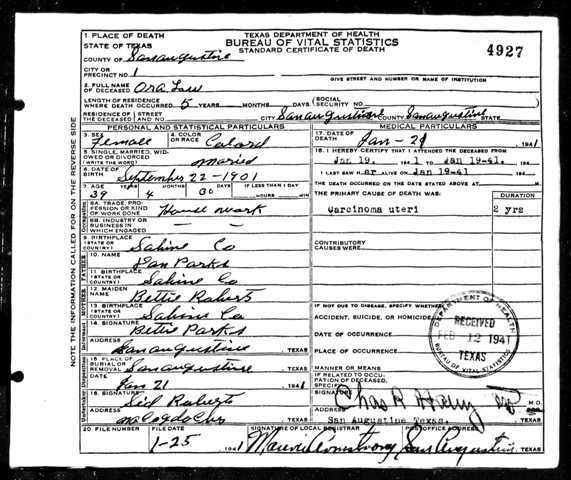 1 PLACE OF DEATH
STATE OF TEXAS
TEXAS DEPARTMENT OF HEALTH
BUREAU OF VITAL STATISTICS
STANDARD CERTIFICATE OF DEATH
4927
COUNTY OF San augustine
CITY OR
PRECINCT NO. 1
GIVE STREET AND NUMBER OR NAME OF INSTITUTION
2. FULL NAME
OF DECEASED Ora
LENGTH OF RESIDENCE
WHERE DEATH OCCURRED 5 YEARS MONTHS DAYS
SOCIAL
SECURITY NO.
RESIDENCE OF STREET
THE DECEASED AND NO. CITY San augustine COUNTY San augustine STATE
PERSONAL AND STATISTICAL PARTICULARS
MEDICAL PARTICULARS
3. SEX Female
4. COLOR
OR RACE Colord
5. SINGLE, MARRIED, WID-
OWED OR DIVORCED
(WRITE THE WORD) Maried
6. DATE OF
BIRTH September 22-1901
7. AGE YEARS MONTHS DAYS IF LESS THAN 1 DAY
39 4 HOURS MIN
8A. TRADE, PRO-
FESSION OR KIND
OF WORK DONE House work
8B. INDUSTRY OR
BUSINESS IN
WHICH ENGAGED — —
9. BIRTHPLACE
(STATE OR
COUNTRY) Sabine Co
10. NAME
Dan Parks
11 BIRTHPLACE
(STATE OR
COUNTRY) Sabine Co
12 MAIDEN
NAME Bettie Roberts
13. BIRTHPLACE
(STATE OR
COUNTRY) Sabine Co
14. SIGNATURE
Bettie Parks
ADDRESS
San augustine, TEXAS
15. PLACE OF
BURIAL OR
REMOVAL San augustine, TEXAS
DATE
Jan 21 1941
16. SIGNATURE
Sid Roberts
ADDRESS
nacogdoches, TEXAS
20. FILE NUMBER FILE DATE
1-25 1941
17. DATE OF
DEATH Jan - 21 1941
18. I HEREBY CERTIFY THAT I ATTENDED THE DECEASED FROM
Jan 19. 1941 TO Jan 19-41.
I LAST SAW Her ALIVE ON Jan 19-41
THE DEATH OCCURRED ON THE DATE STATED ABOVE AT M.
THE PRIMARY CAUSE OF DEATH WAS: DURATION
Carcinoma uteri 2 yrs
CONTRIBUTORY
CAUSES WERE:
IF NOT DUE TO DISEASE, SPECIFY WHETHER
ACCIDENT, SUICIDE, OR HOMICIDE
DATE OF OCCURRENCE
PLACE OF OCCURRENCE
MANNER OR MEANS
IF RELATED TO OCCU-
PATION OF DECEASED,
SPECIFY
SIGNATURE Chas R M.D.
ADDRESS
San Augustine Texas. TEXAS
SIGNATURE OF LOCAL REGISTRAR POSTOFFICE ADDRESS
Armstrong San Augustine, TEXAS
DEPARTMENT OF HEALTH
RECEIVED
FEB 12 1941
TEXAS
BUREAU OF VITAL STATISTICS
NOTE THE INFORMATION CALLED FOR ON THE REVERSE SIDE
FATHER
MOTHER